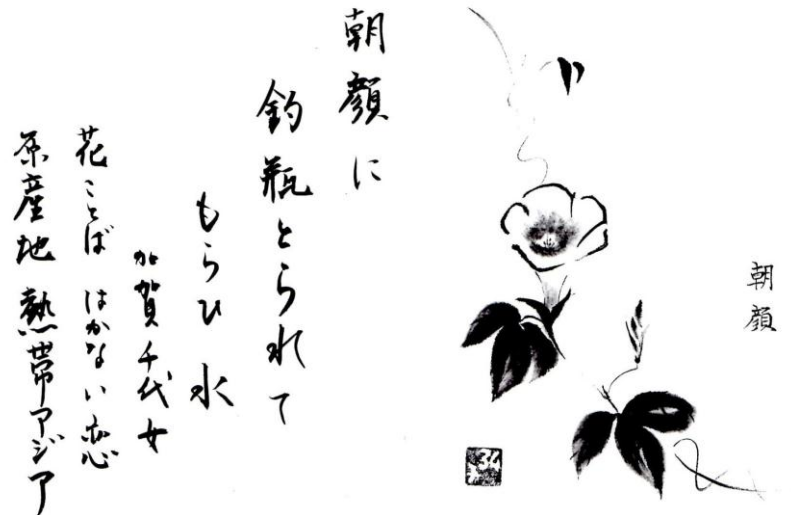 朝顔
朝顔に
釣瓶とられて
もらひ水
加賀千代女
花ことば はかない恋
原産地 熱帯アジア